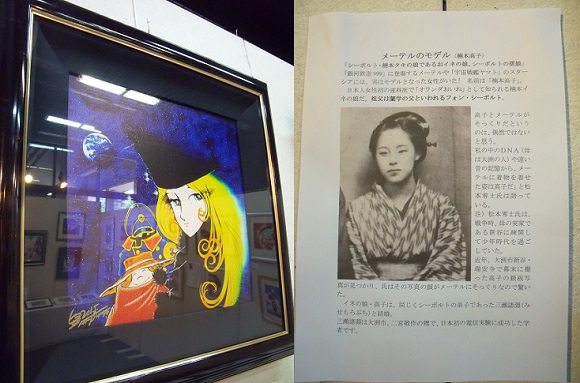 メーテルのモデル（楠本高子）
「シーボルト・楠本タキの娘であるおイネの娘、シーボルトの孫娘」
「銀河鉄道999」に登場するメーテルや「宇宙戦艦ヤマト」のスター
シアには、実はモデルとなった女性がいた！ 名前は「楠本高子」。
日本人女性初の産科医で「オランダおいね」として知られる楠本イ
ネの娘だ。祖父は蘭学の父といわれるフォン・シーボルト。
高子とメーテルが
そっくりだという
のは、偶然ではない
と思う。
私の中のDNA（母
は大洲の人）や遠い
昔の記憶から、メー
テルに着物を着せ
た姿は高子だ」と松
本零士氏は語って
いる。
注）松本零士氏は、
戦争時、母の実家で
ある新谷に疎開し
て少年時代を過ご
していた。
近年、大洲市新谷・
瑞安寺で幕末に撮
った高子の銀板写
真が見つかり、氏はその写真の顔がメーテルにそっくりなので驚い
た。
イネの娘・高子は、同じくシーボルトの弟子であった三瀬諸淵（み
せもろぶち）と結婚。
三瀬諸淵は大洲市、二宮敬作の甥で、日本初の電信実験に成功した学
者です。